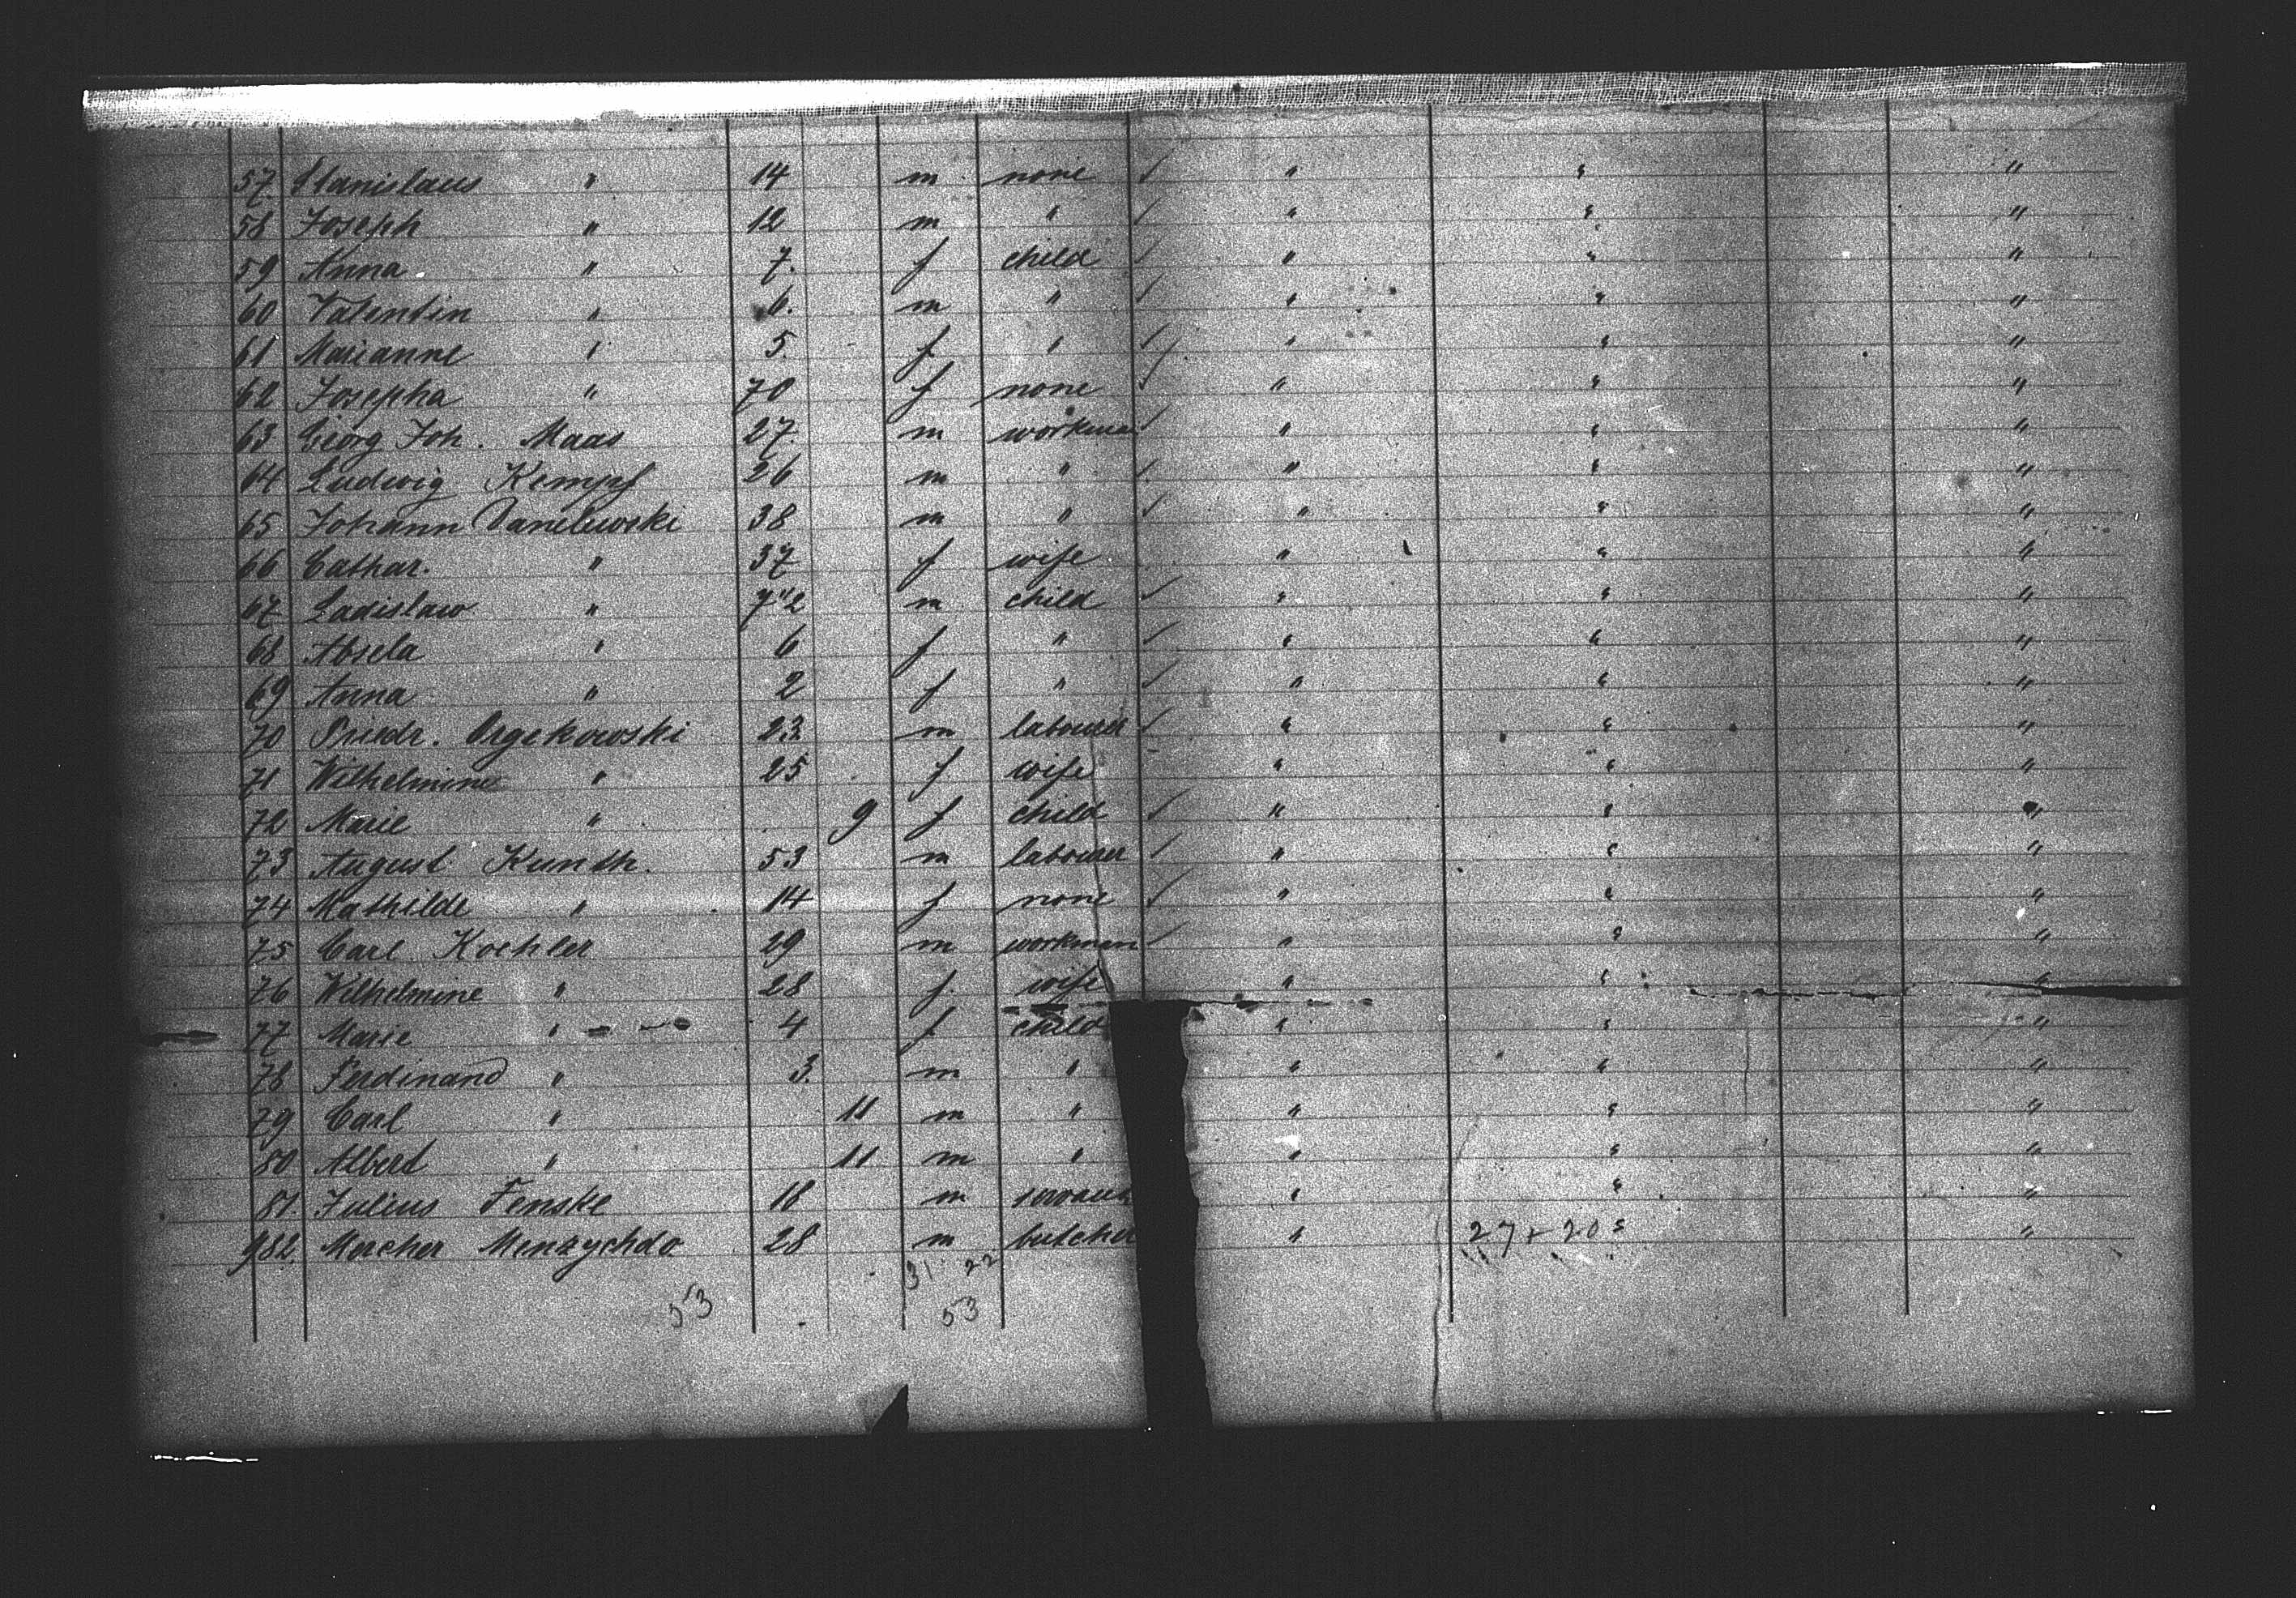 57. Stanislaus " 14 m none " " "
58 Joseph " 12 m " " " "
59 Anna " 7. f child " " "
60 Valentin " 6. m " " " "
61 Marianne " 5. f " " " "
62 Josepha " 70 f none " " "
63 Georg Joh. Maas 27. m workman " " "
64 Ludwig Kempf 26 m " " " "
65 Johann Danilewski 38 m " " " "
66 Cathar. " 37 f wife " " "
67 Ladislaw " 7"2 m child " " "
68 " 6 f " " " "
69 Anna " 2 f " " " "
70 Friedr. 23 m labourer " " "
71 Wilhelmine " 25 f wife " " "
72 Marie " 9 f child " " "
73 August Kunth. 53 m labourer " " "
74 Mathilde " 14 f none " " "
75 Carl Koehler 29 m workman " " "
76 Wilhelmine " 28 f. wife " " "
77 Marie " 4 f child " " "
78 Ferdinand " 3. m " " " "
79 Carl " 11 m " " " "
80 Albert " 11 m " " " "
81. Julius Fenske 18 m servant " " "
982. Menzychdo 28 m butcher " 27+20 s "
31 22
53 53